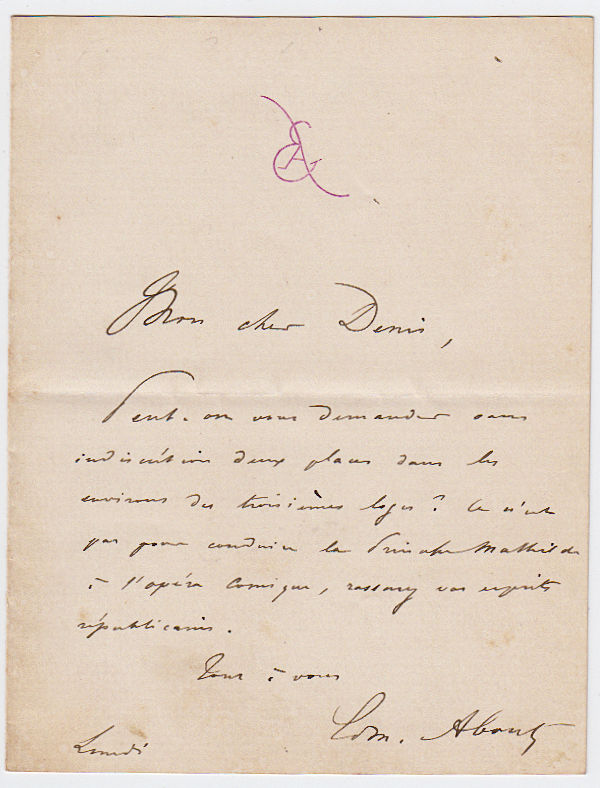 EA
Mon cher Denis,
Peut-on vous demander sans
indiscrétion deux places dans les
environs des troisièmes loges ? Ce n'est
pas pour conduire la Princesse Mathilde
à l'opéra Comique, rassurez vos esprits
républicains.
Tout à vous
Edm. About
Lundi